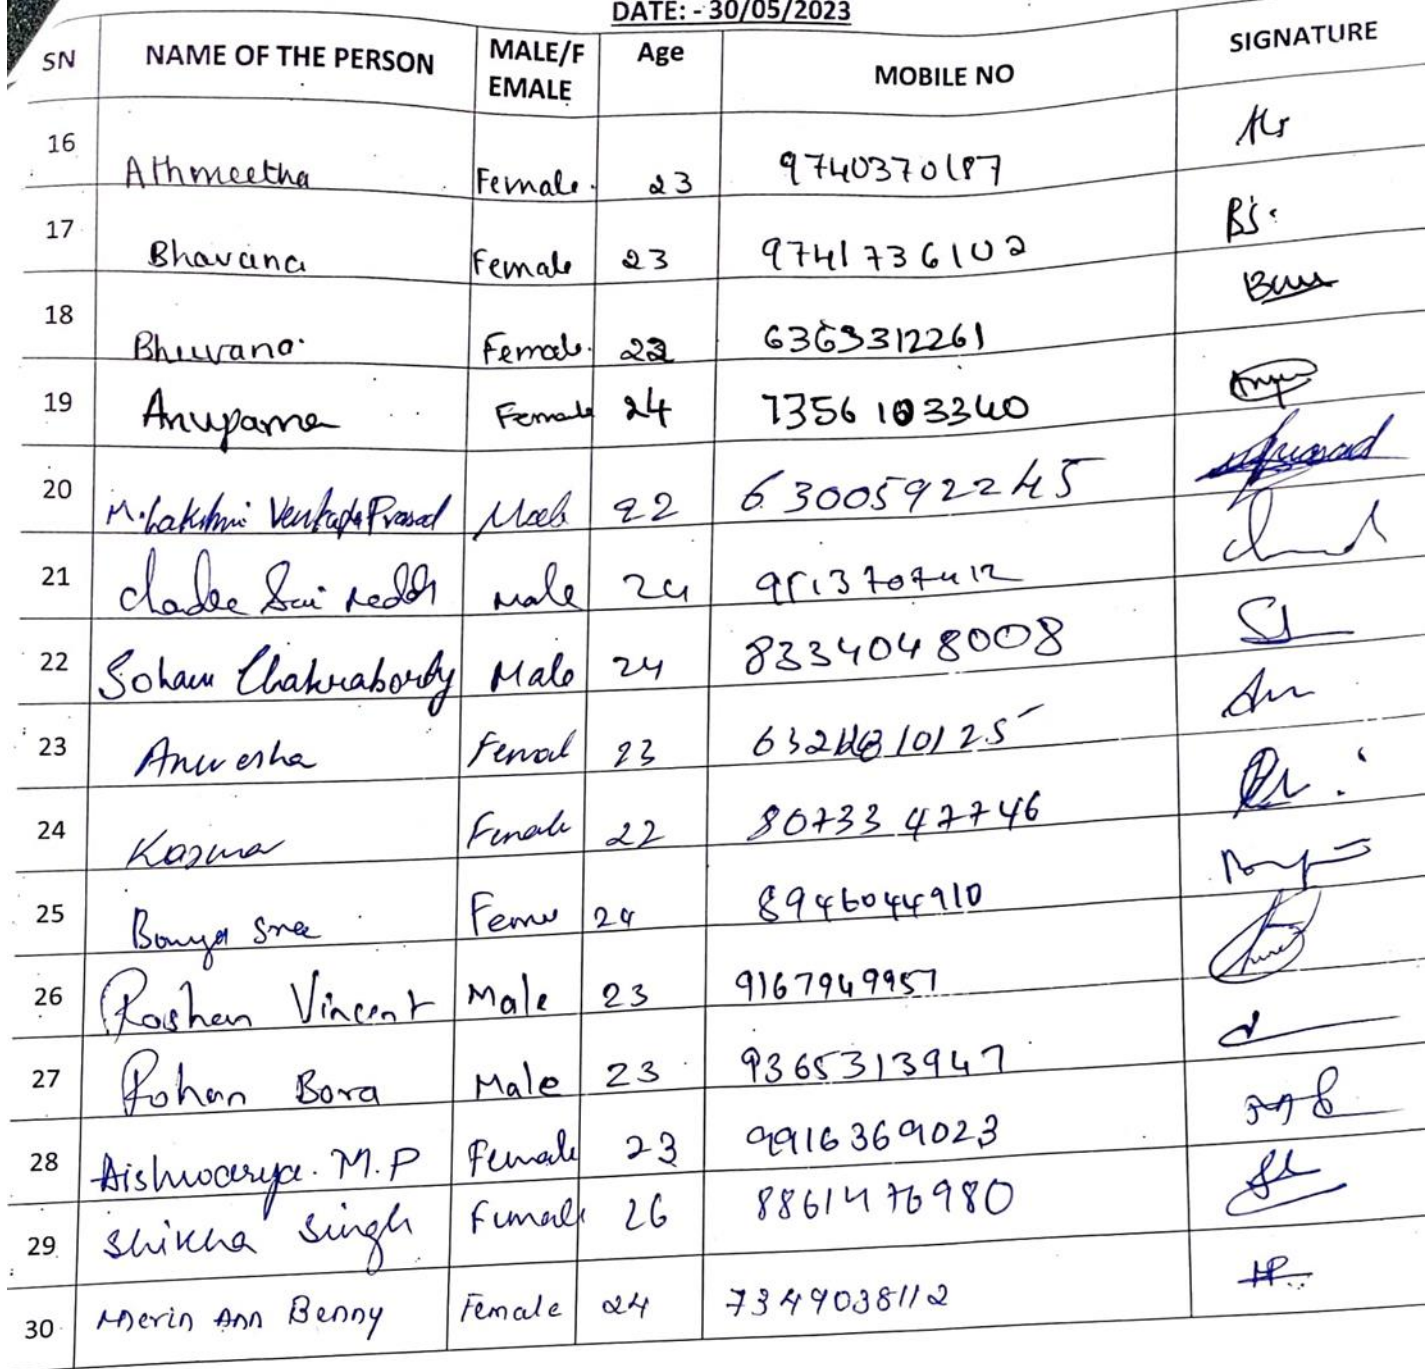 DATE: - 30/05/2023
SN NAME OF THE PERSON MALE/F EMALE Age MOBILE NO SIGNATURE
16 Athmeetha Female. 23 9740370187
17 Bhavana Female 23 9741736102 BS.
18 Bhuvana. Female. 22 6363312261
19 Anupama Female 24 7356 103340
20 M. Lakshmi Venkata Prasad Male 22 6300592245
21 Sai reddy Male 24 9513707412
22 Soham Chakraborty Male 24 8334048008
23 Anwesha Femal 23
24 Female 22 80733 47746
25 Bonya Sree 24 8946044910
26 Roshan Vincent Male 23 9167949957
27 Rohan Bora Male 23 9365313947
28 Aishwarya. M.P Female 23 9916369023
29 Shikha Singh Female 26 8861476980
30 Merin Ann Benny Female 24 7349038112